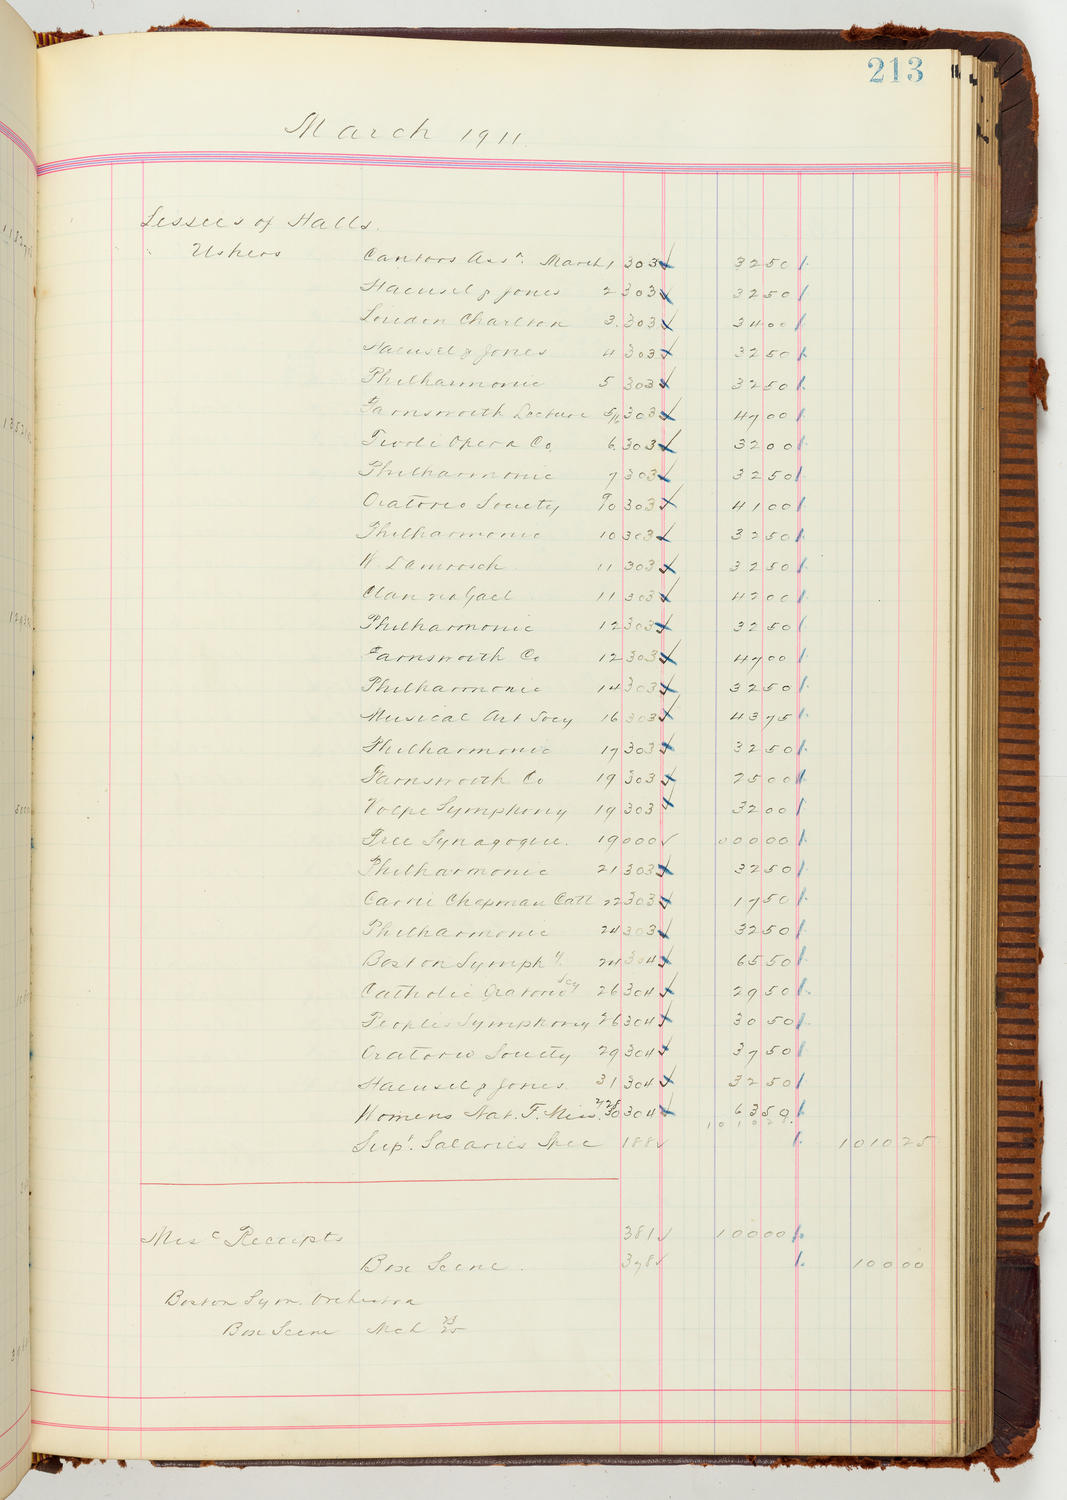 213
March 1911.
Lessees of Halls.
Ushers Cantors Assn. March 1 303 ✓ 32 50
Haensel & Jones 2 303 ✓ 32 50
Loudon Charlton 3. 303 ✓ 34 00
Haensel & Jones 4 303 ✓ 32 50
Philharmonic 5 303 ✓ 32 50
Farnsworth Lecture 5/6 303 ✓ 47 00
Tivoli Opera Co. 6. 303 ✓ 32 00
Philharmonic 7 303 ✓ 32 50
Oratorio Society 9/10 303 ✓ 41 00
Philharmonic 10 303 ✓ 32 50
W. Damrosch 11 303 ✓ 32 50
Clan na Gael 11 303 ✓ 42 00
Philharmonic 12 303 ✓ 32 50
Farnsworth Co 12 303 ✓ 47 00
Philharmonic 14 303 ✓ 32 50
Musical Art Socy 16 303 ✓ 43 75
Philharmonic 17 303 ✓ 32 50
Farnsworth Co 19 303 ✓ 25 00
Volpe Symphony 19 303 ✓ 32 00
Free Synagogue. 19 000 ✓ 000 00
Philharmonic 21 303 ✓ 32 50
Carrie Chapman Catt 22 303 ✓ 17 50
Philharmonic 24 303 ✓ 32 50
Boston Symphy. 24 304 ✓ 65 50
Catholic Oratorio Scy 26 304 ✓ 29 50
Peoples Symphony 26 304 ✓ 30 50
Oratorio Society 29 304 ✓ 37 50
Haensel & Jones. 31 304 ✓ 32 50
Womens Nat. F. Miss. 30 304 ✓ 63 50
Supt. Salaries Spec 188 ✓ 1010 25
Misc Receipts 381 ✓ 100 00
Box Scene. 378 ✓ 100 00
Boston Sym. Orchestra
Box Scene Mch 23/25